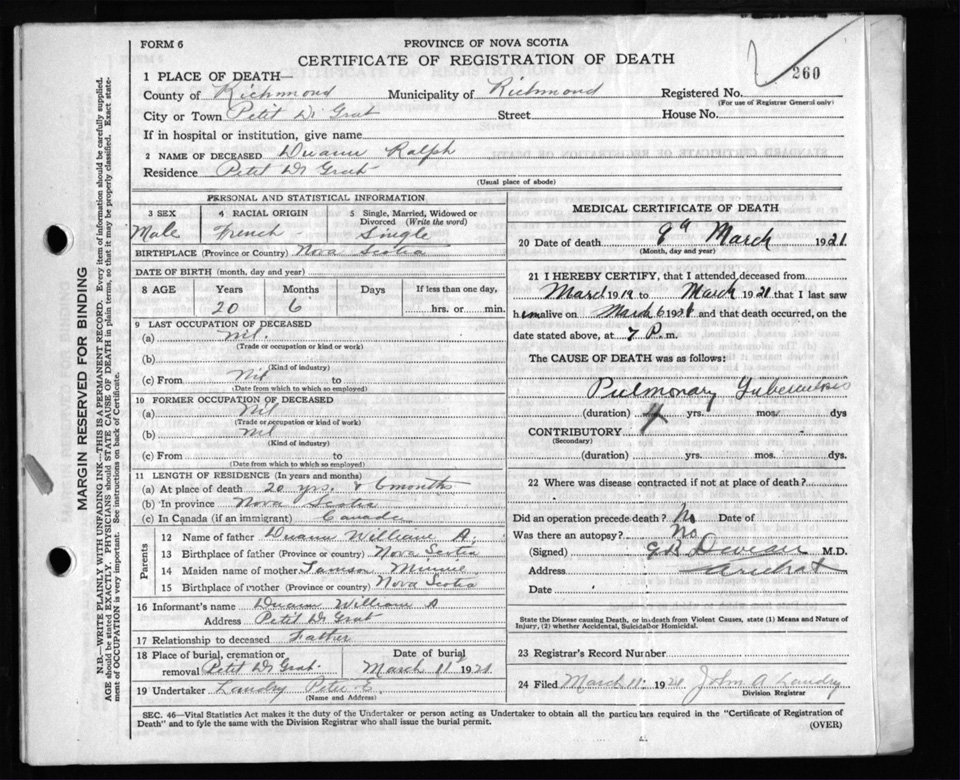 FORM 6
PROVINCE OF NOVA SCOTIA
CERTIFICATE OF REGISTRATION OF DEATH
260
1 PLACE OF DEATH—
County of Richmond Municipality of Richmond Registered No.
(For use of Registrar General only)
City or Town Petit D' Grat Street House No.
If in hospital or institution, give name
2 NAME OF DECEASED Duann Ralph
Residence Petit D' Grat
(Usual place of abode)
PERSONAL AND STATISTICAL INFORMATION
3 SEX 4 RACIAL ORIGIN 5 Single, Married, Widowed or Divorced (Write the word)
Male French Single
BIRTHPLACE (Province or Country) Nova Scotia
DATE OF BIRTH (month, day and year)
8 AGE Years Months Days If less than one day,
20 6 hrs. or min.
9 LAST OCCUPATION OF DECEASED
(a) Nil.
(Trade or occupation or kind or work)
(b)
(Kind of industry)
(c) From Nil to
(Date from which to which so employed)
10 FORMER OCCUPATION OF DECEASED
(a) Nil
(Trade or occupation or kind of work)
(b) Nil
(Kind of industry)
(c) From to
(Date from which to which so employed)
11 LENGTH OF RESIDENCE (In years and months)
(a) At place of death 20 yrs. & 6 months
(b) In province Nova Scotia
(c) In Canada (if an immigrant) Canada
Parents
12 Name of father Duann William A.
13 Birthplace of father (Province or country) Nova Scotia
14 Maiden name of mother Samson Minnie
15 Birthplace of mother (Province or country) Nova Scotia
16 Informant's name Duann William A
Address Petit D' Grat
17 Relationship to deceased Father
18 Place of burial, cremation or removal Petit D' Grat. Date of burial March 11 1921
19 Undertaker Landry Peter C.
(Name and Address)
MEDICAL CERTIFICATE OF DEATH
20 Date of death 9th March 1921
(Month, day and year)
21 I HEREBY CERTIFY, that I attended deceased from
March 1919 to March 1921 that I last saw
him alive on March 6 1921 and that death occurred, on the
date stated above, at 7 P. m.
The CAUSE OF DEATH was as follows:
Pulmonary Tuberculosis
(duration) 4 yrs. mos. dys
CONTRIBUTORY
(Secondary)
(duration) yrs. mos. dys.
22 Where was disease contracted if not at place of death?
Did an operation precede death? No Date of
Was there an autopsy? No
(Signed) M.D.
Address Arichat
Date
State the Disease causing Death, or in death from Violent Causes, state (1) Means and Nature of
Injury, (2) whether Accidental, Suicidal or Homicidal.
23 Registrar's Record Number
24 Filed March 11. 1921 John A Landry
Division Registrar
SEC. 46—Vital Statistics Act makes it the duty of the Undertaker or person acting as Undertaker to obtain all the particulars required in the "Certificate of Registration of
Death" and to fyle the same with the Division Registrar who shall issue the burial permit.
(OVER)
MARGIN RESERVED FOR BINDING
N.B.—WRITE PLAINLY WITH UNFADING INK—THIS IS A PERMANENT RECORD. Every item of information should be carefully supplied.
AGE should be stated EXACTLY. PHYSICIANS should STATE CAUSE OF DEATH in plain terms, so that it may be properly classified. Exact state-
ment of OCCUPATION is very important. See instructions on back of Certificate.